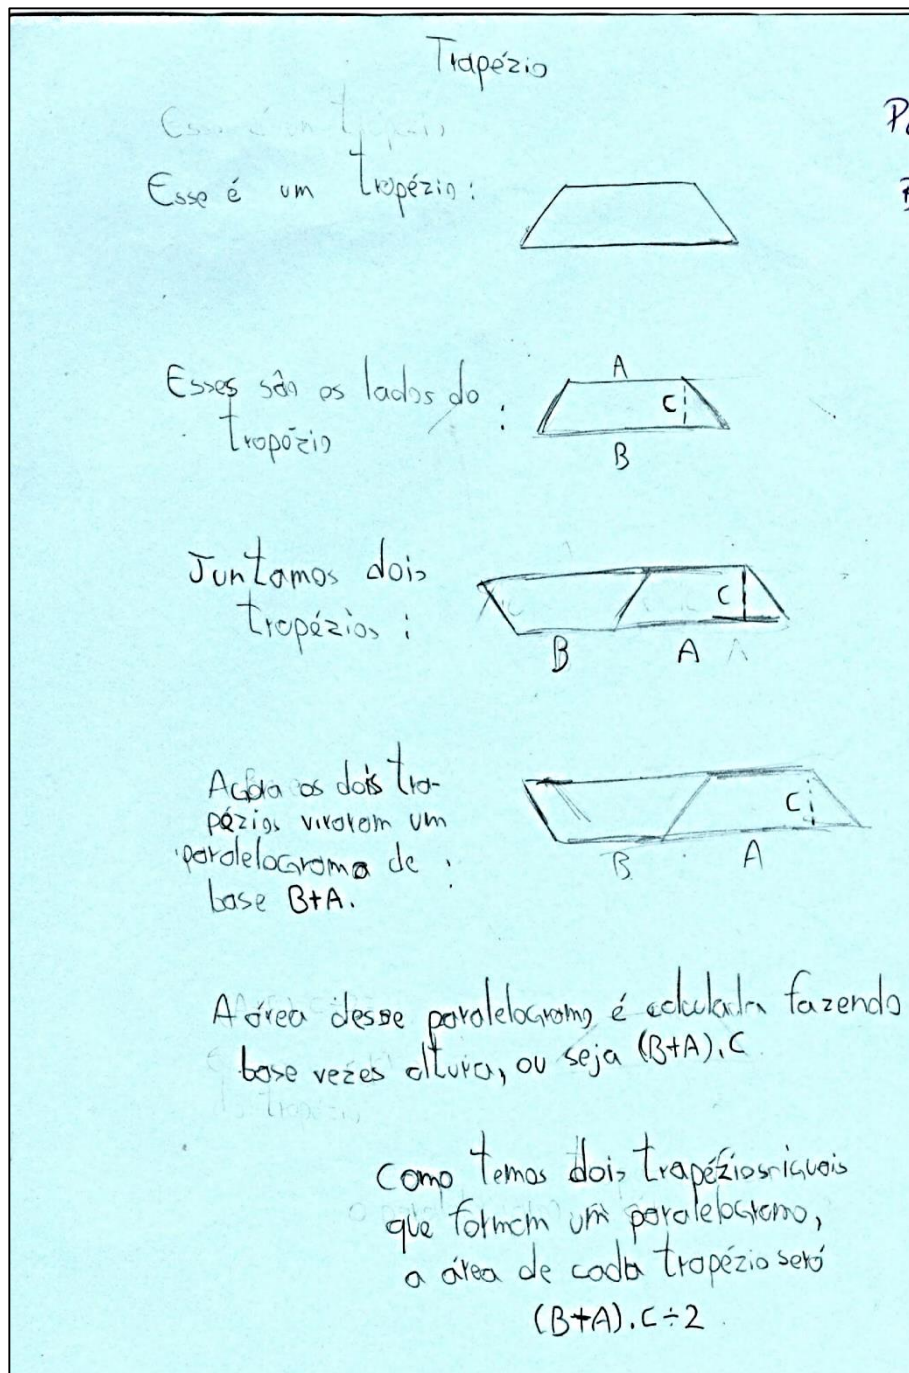 Trapézio
Esse é um trapézio:
Esses são os lados do
trapézio :
A
C
B
Juntamos dois
trapézios :
C
B A
Agora os dois tra-
pézios viraram um
paralelogramo de :
base B+A.
C
B A
A área desse paralelogramo é calculada fazendo
base vezes altura, ou seja (B+A).C
Como temos dois trapézios iguais
que formam um paralelogramo,
a área de cada trapézio será
(B+A).C÷2